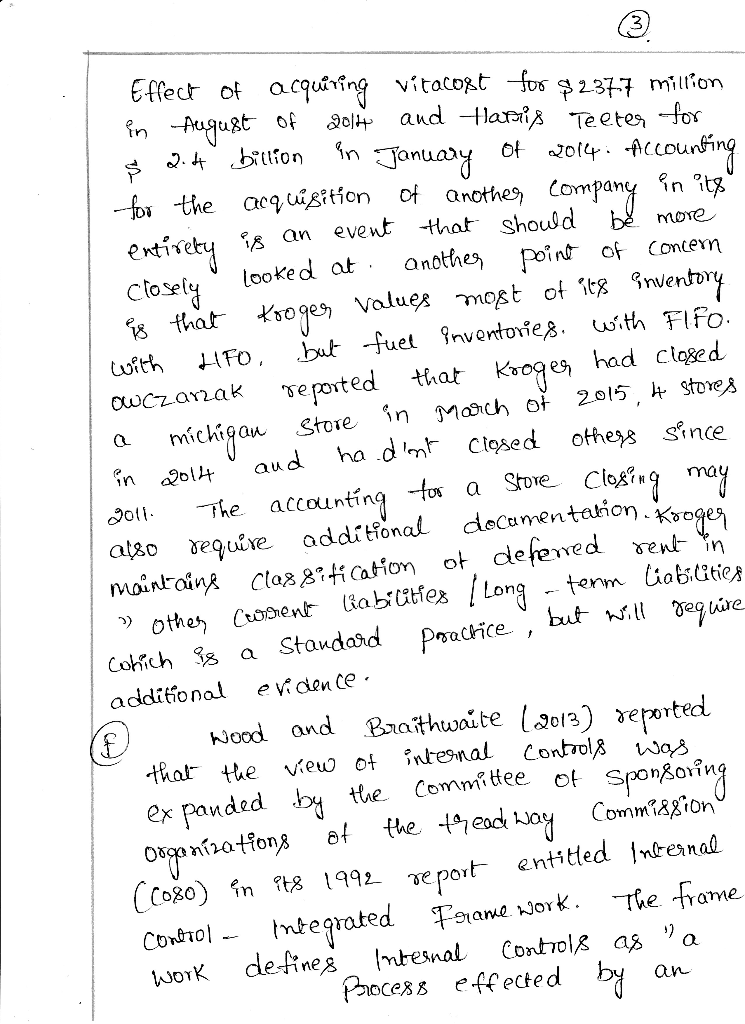 3
Effect of acquiring vitacost for $237.7 million
in August of 2014 and Harris Teeter for
$ 2.4 billion in January of 2014. Accounting
for the acquisition of another company in its
entirety is an event that should be more
closely looked at. another point of concern
is that Kroger values most of its inventory
with LIFO, but fuel inventories. with FIFO.
owczarzak reported that Kroger had closed
a michigan store in March of 2015, 4 stores
in 2014 and had'nt closed others since
2011. The accounting for a store closing may
also require additional documentation. Kroger
maintains classification of deferred rent in
" other current liabilities / Long - term liabilities
which is a standard practice, but will require
additional evidence.
f Wood and Braithwaite (2013) reported
that the view of internal controls was
expanded by the committee of sponsoring
organizations of the treadway commission
(COSO) in its 1992 report entitled Internal
control - Integrated Framework. The frame
work defines Internal controls as "a
Process effected by an